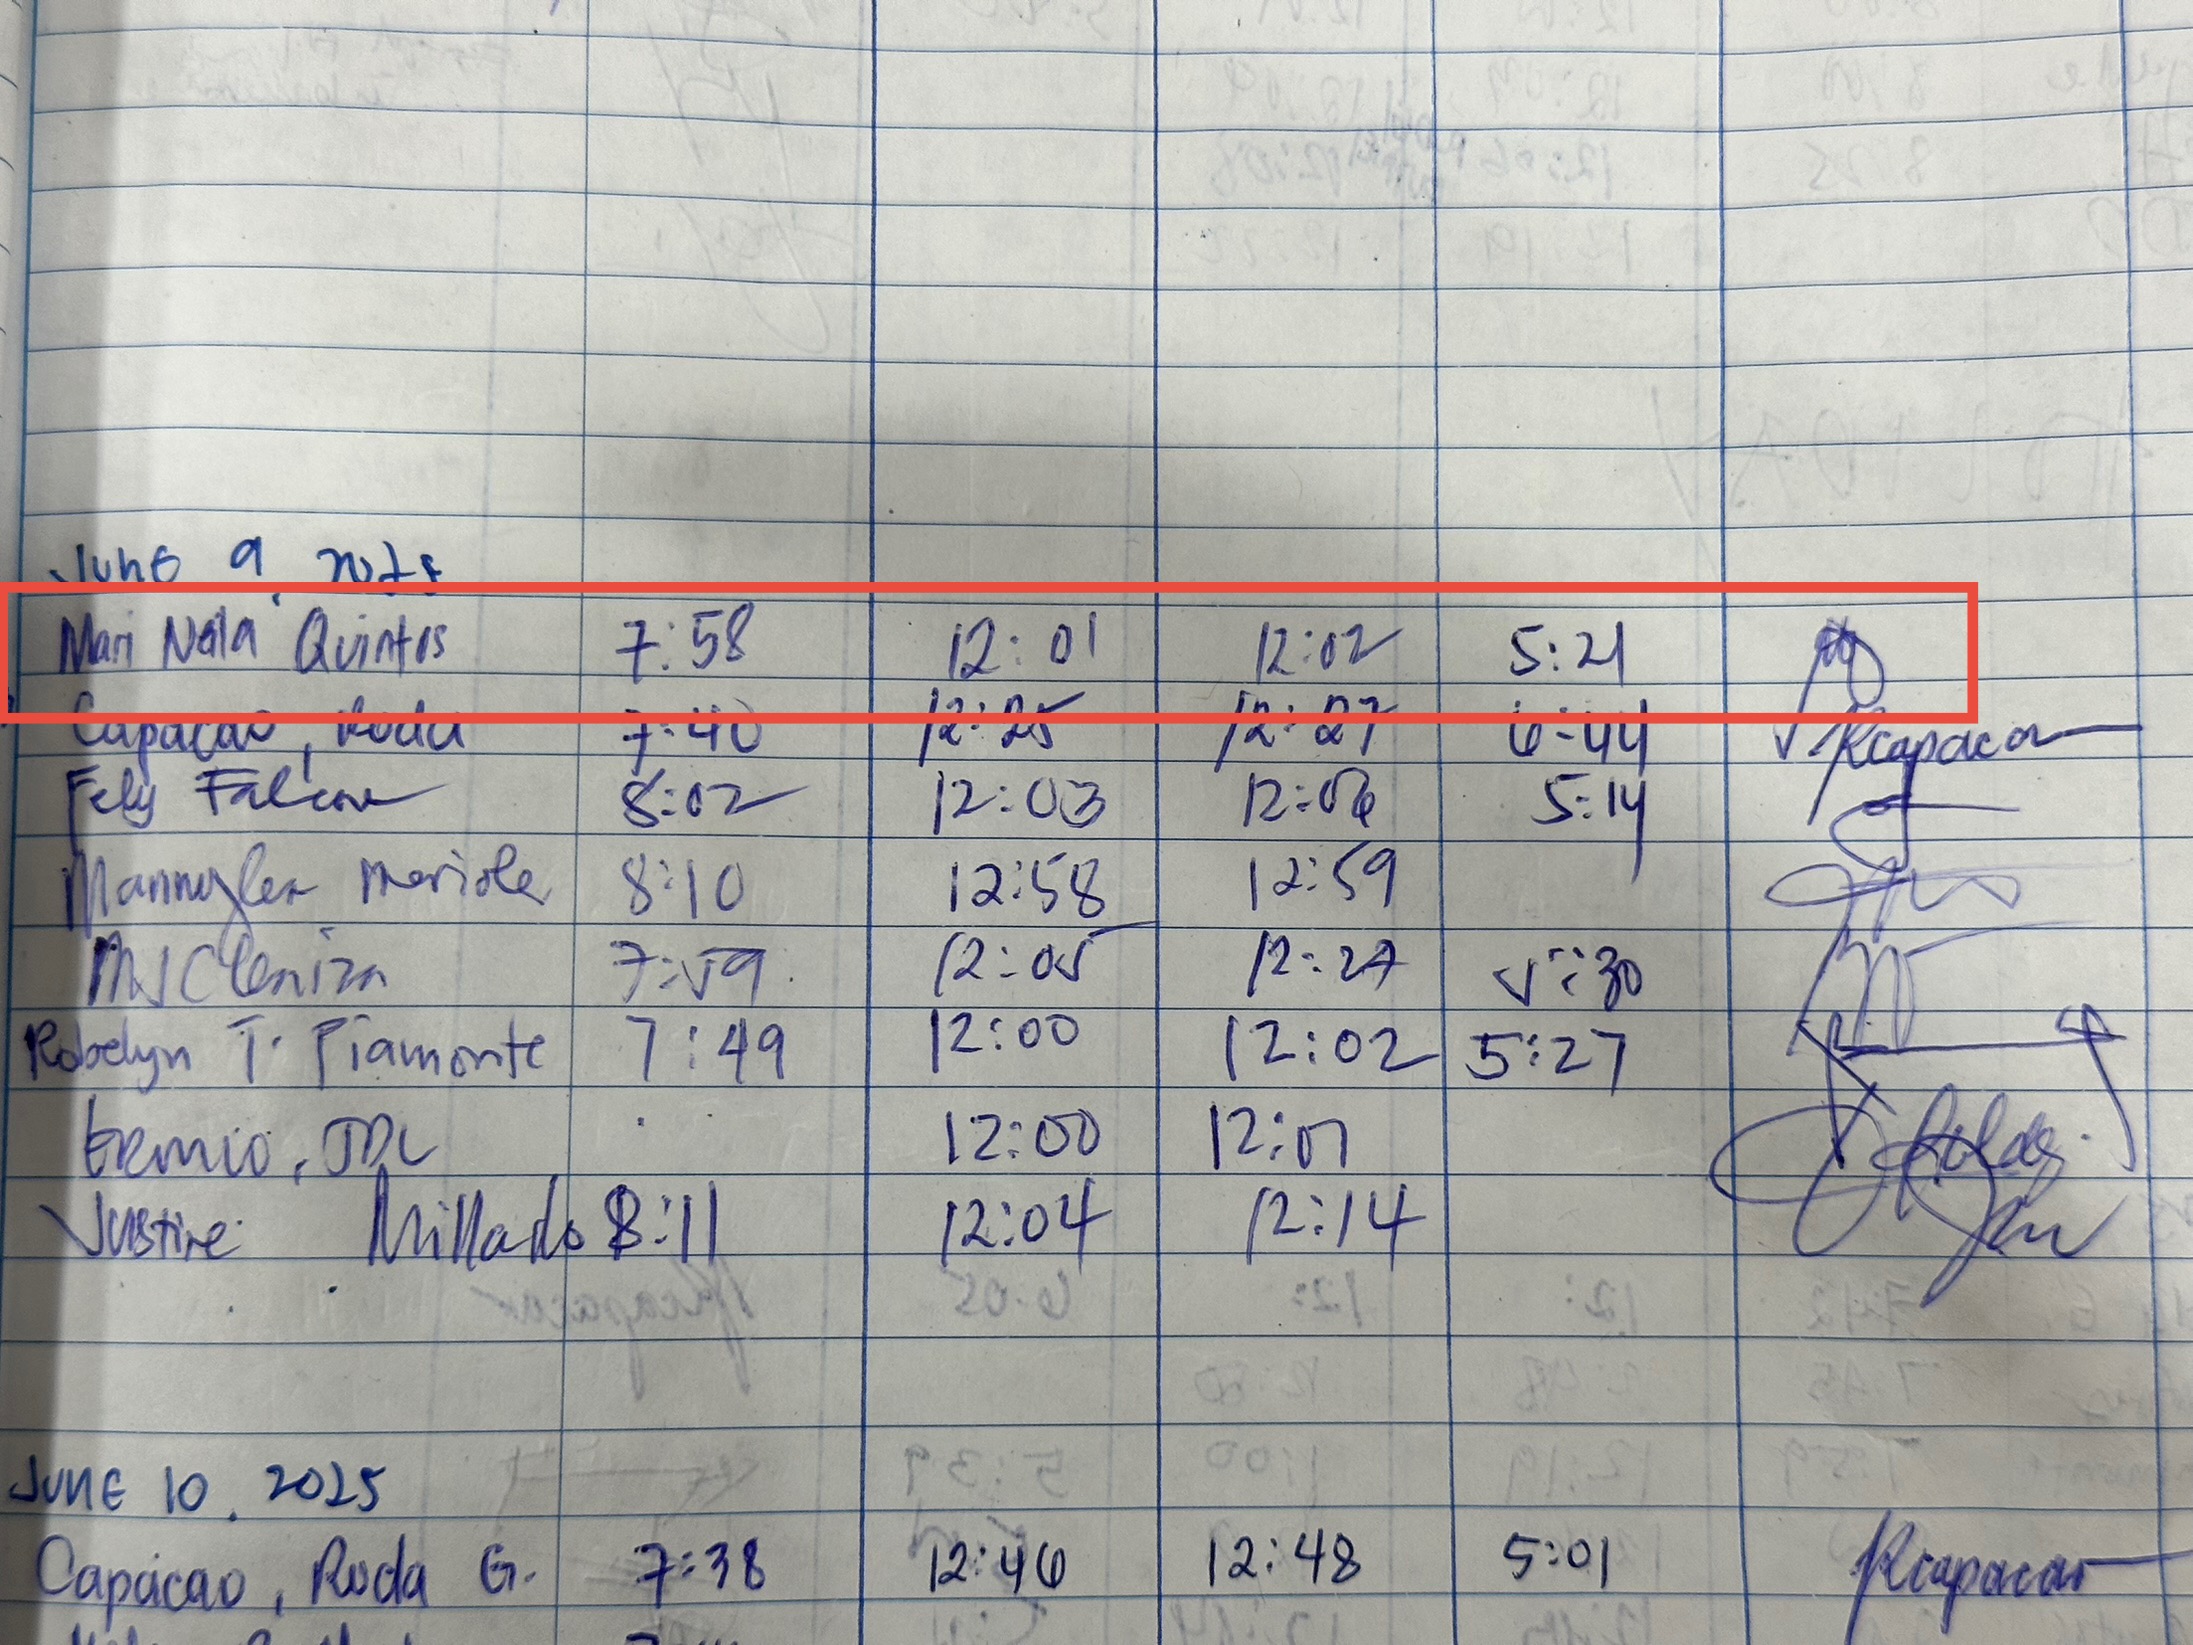 JUNE 9, 2025
Mari Nola Quintos 7:58 12:01 12:02 5:21
Capacao, Roda 7:40 12:25 12:27 6:44 Rcapacao
Fely Falcon 8:02 12:03 12:06 5:14
Mannylen Meriole 8:10 12:58 12:59
7:59 12:05 12:27 5:30
Robelyn T. Piamonte 7:49 12:00 12:02 5:27
Eremio, JDL 12:00 12:01
Justine Millado 8:11 12:04 12:14
JUNE 10, 2025
Capacao, Roda G. 7:38 12:46 12:48 5:01 Rcapacao